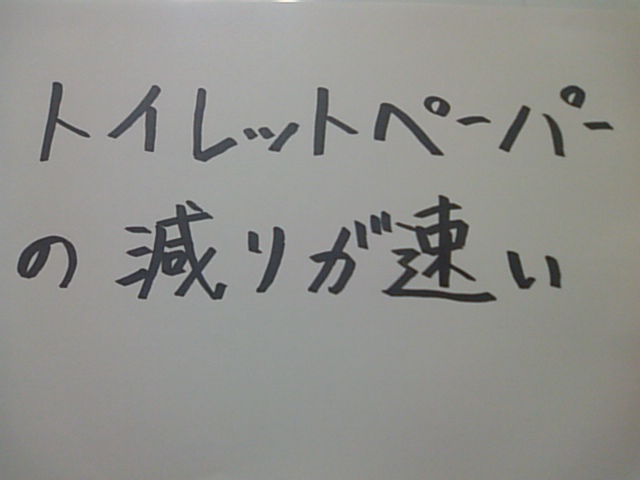 トイレットペーパー
の減りが速い